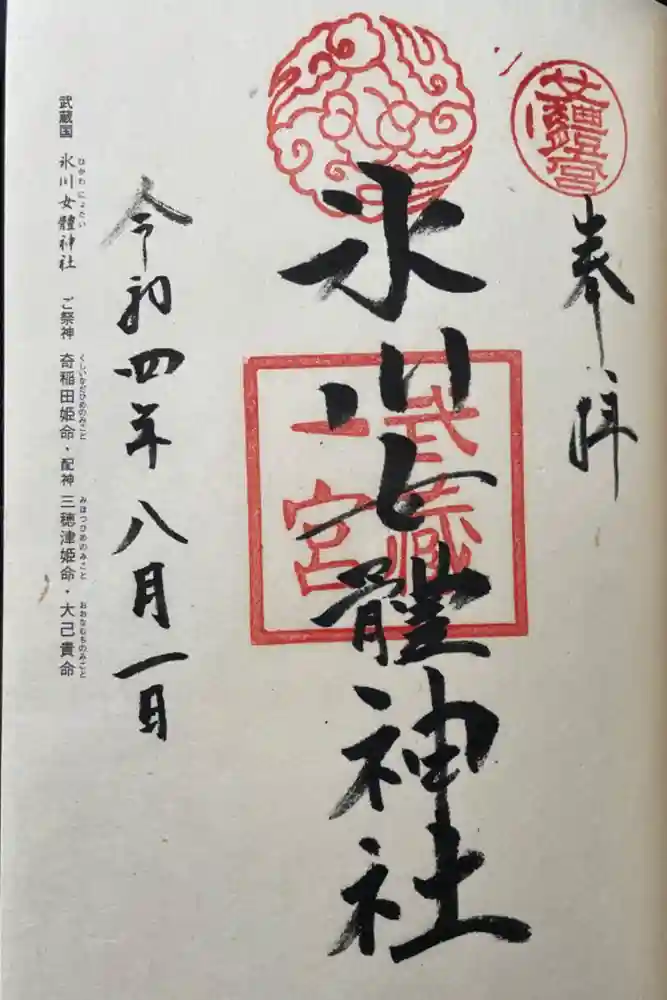 奉拝
氷川女體神社
武蔵
一宮
令和四年八月一日
武蔵国 氷川女體神社 ご祭神 奇稲田姫命・配神 三穂津姫命・大己貴命
ひかわ にょたい
くしいなだひめのみこと
みほつひめのみこと
おおなむちのみこと